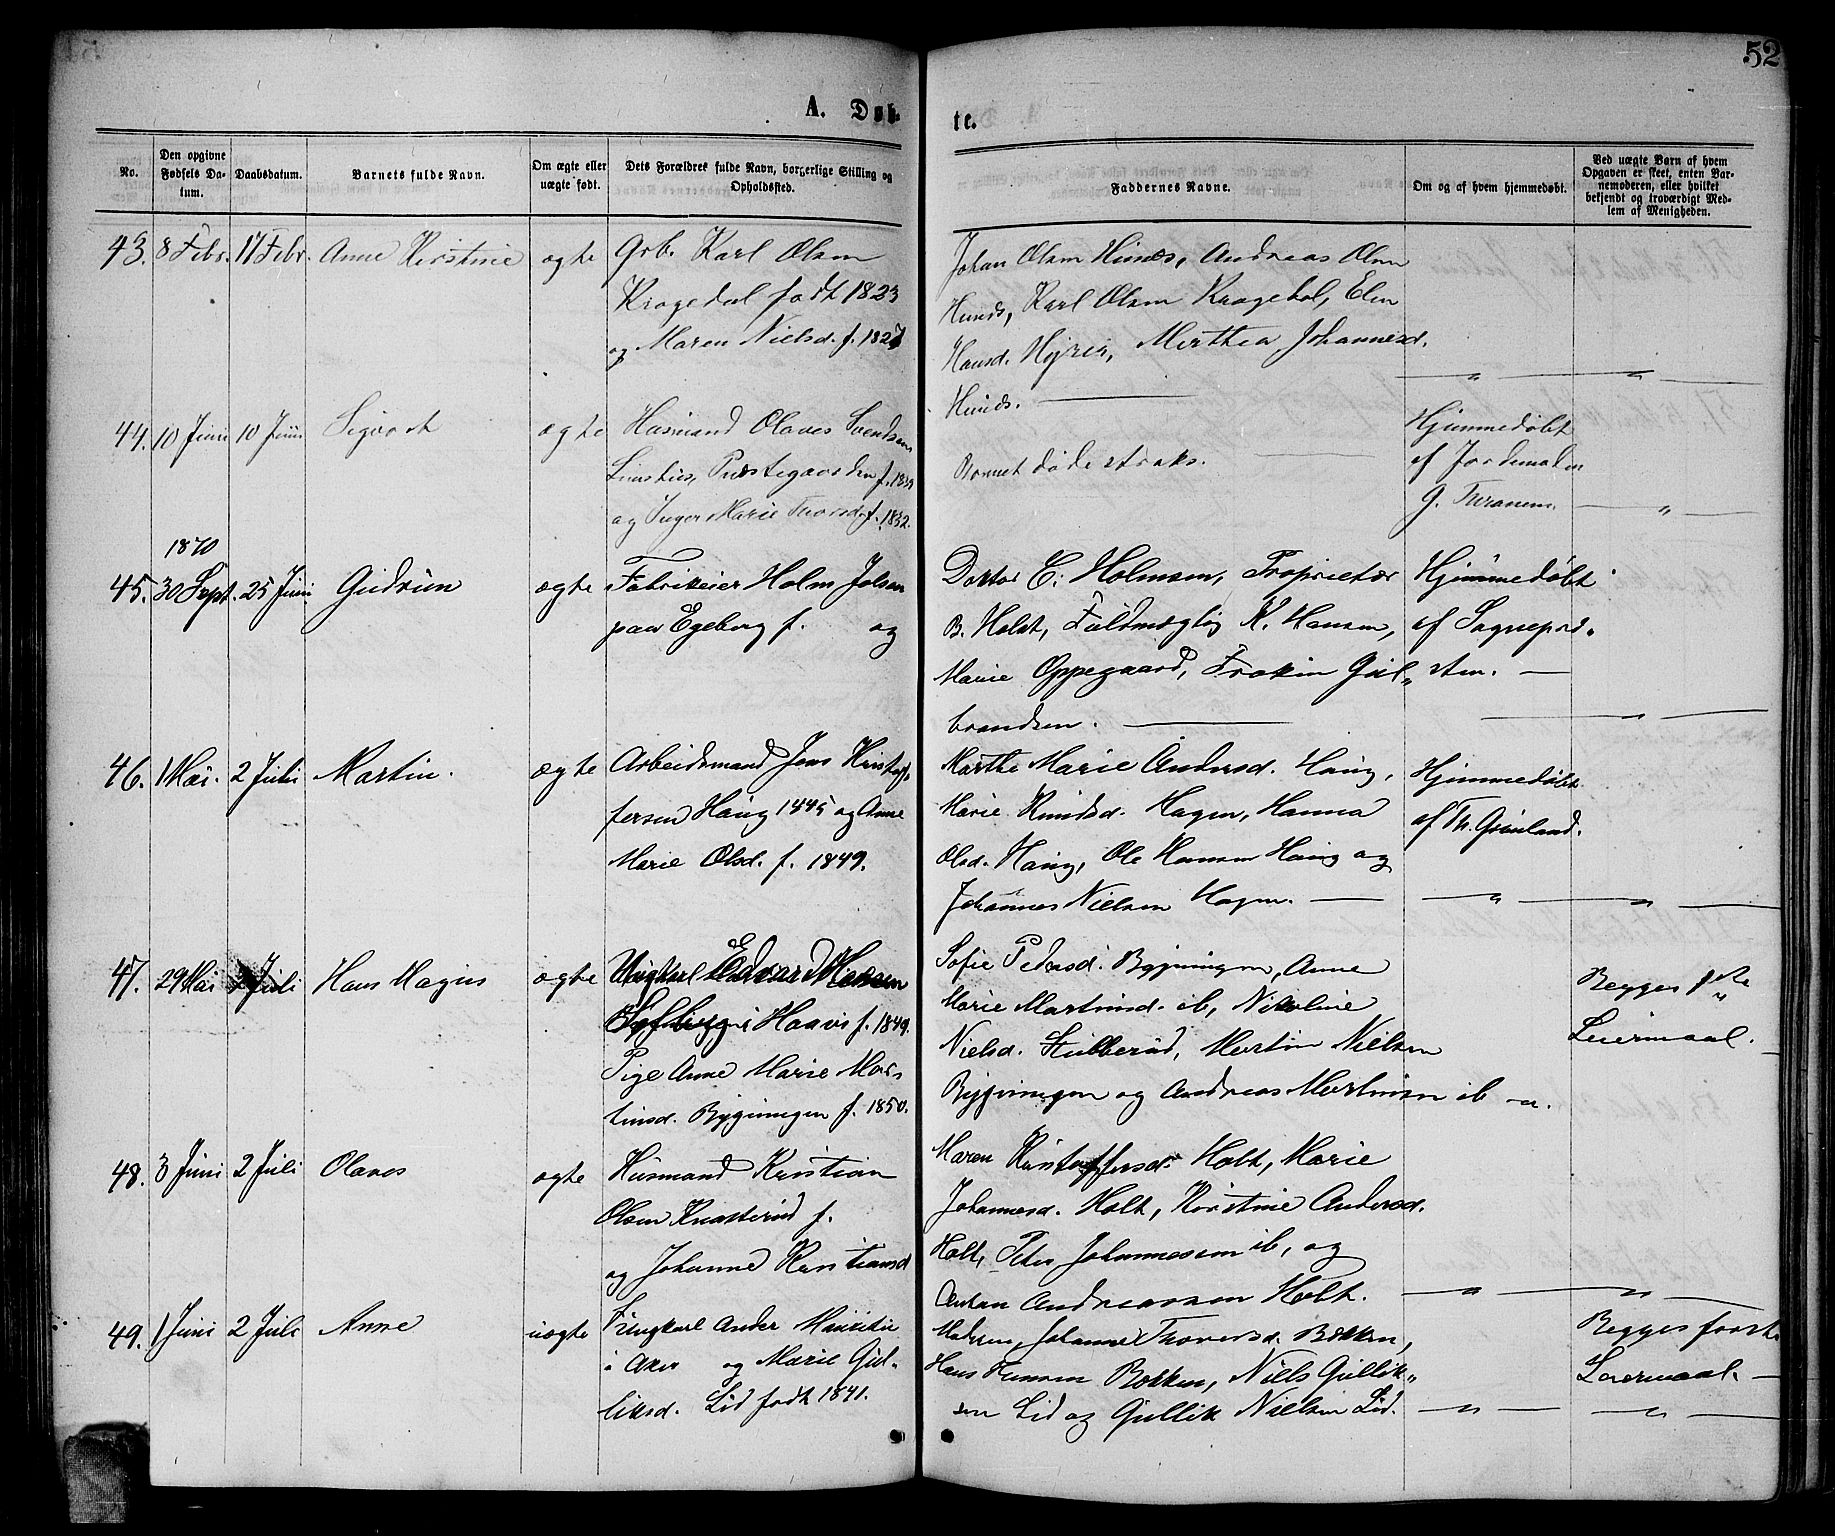 52
A. Døb-
te.
No.
Den opgivne Fødsels Da-tum.
Daabsdatum.
Barnets fulde Navn.
Om ægte eller uægte født.
Dets Forældres fulde Navn, borgerlige Stilling og Opholdssted.
Faddernes Navne.
Om og af hvem hjemmedøbt.
Ved uægte Barn af hvem Opgaven er skeet, enten Bar-nemoderen, eller hvilket bekjendt og troværdigt Med-lem af Menigheden.
43. 8 Febr. 17 Febr. Anne Kirstine ægte Grb. Karl Olsen
Kragedal født 1823
og Maren Nielsd. f. 1827
Johan Olsen Hunds, Andreas Olsen
Hunds, Karl Olsen Kragebøl, Elen
Hansd. Højren, Merthea Johannesd.
Hunds.
44. 10 Juni 10 Juni Sigvart ægte Husmand Olaves Svendsen
Præstegaarden f. 1839
og Inger Marie Thorsd. f. 1832.
Barnet døde straks.
Hjemmedøbt
af Jordemoder
G. Thranem.
1870
45. 30 Sept. 25 Juni Gudrun ægte Fabrikeier Holm Jølsen
paa Egeberg f. og
Doktor C. Holmsen, Proprietær
B. Holst, Fuldmægtig K. Hansen,
Marie Oppegaard, Frøkin Gul„
brandsen.
Hjemmedøbt
af Sognepræ„
sten.
46. 1 Mai. 2 Juli Martin. ægte Arbeidsmand Jens Kristof„
fersen Haug 1845 og Anne
Marie Olsd. f. 1849.
Marthe Marie Andersd. Haug,
Marie Knudsd. Hagen, Hanna
Olsd. Haug, Ole Hansen Haug og
Johannes Nielsen Hagen.
Hjemmedøbt
af Th. Grønland.
47. 29 Mai 2 Juli Hans Magnus ægte Ungkarl Edvard Hansen
i Haavi f. 1849.
Pige Anne Marie Mar„
tinsd. Bygningen f. 1850.
Sofie Pedersd. Bygningen, Anne
Marie Martinsd. ib, Nikoline
Nielsd. Stubberud, Martin Nielsen
Bygningen og Andreas Martinsen ib
Begges 1ste
Leiermaal.
48. 3 Juni 2 Juli Olaves ægte Husmand Kristian
Olsen Knatterud f.
og Johanne Kristiansd
Maren Kristoffersd. Holt, Marie
Johannesd. Holt, Kirstine Andersd.
Holt, Peter Johannessen ib, og
Anton Andreassen Holt.
49. 1 Juni 2 Juli Anne uægte Ungkarl Ander Mauritzi
i Aker og Marie Gul„
liksd. Lid født 1841.
Moderen, Johanne Thoresd. Bekken,
Hans Hansen Bekken, Niels Gullik„
sen Lid og Gullik Nielsen Lid.
Begges første
Leiermaal.